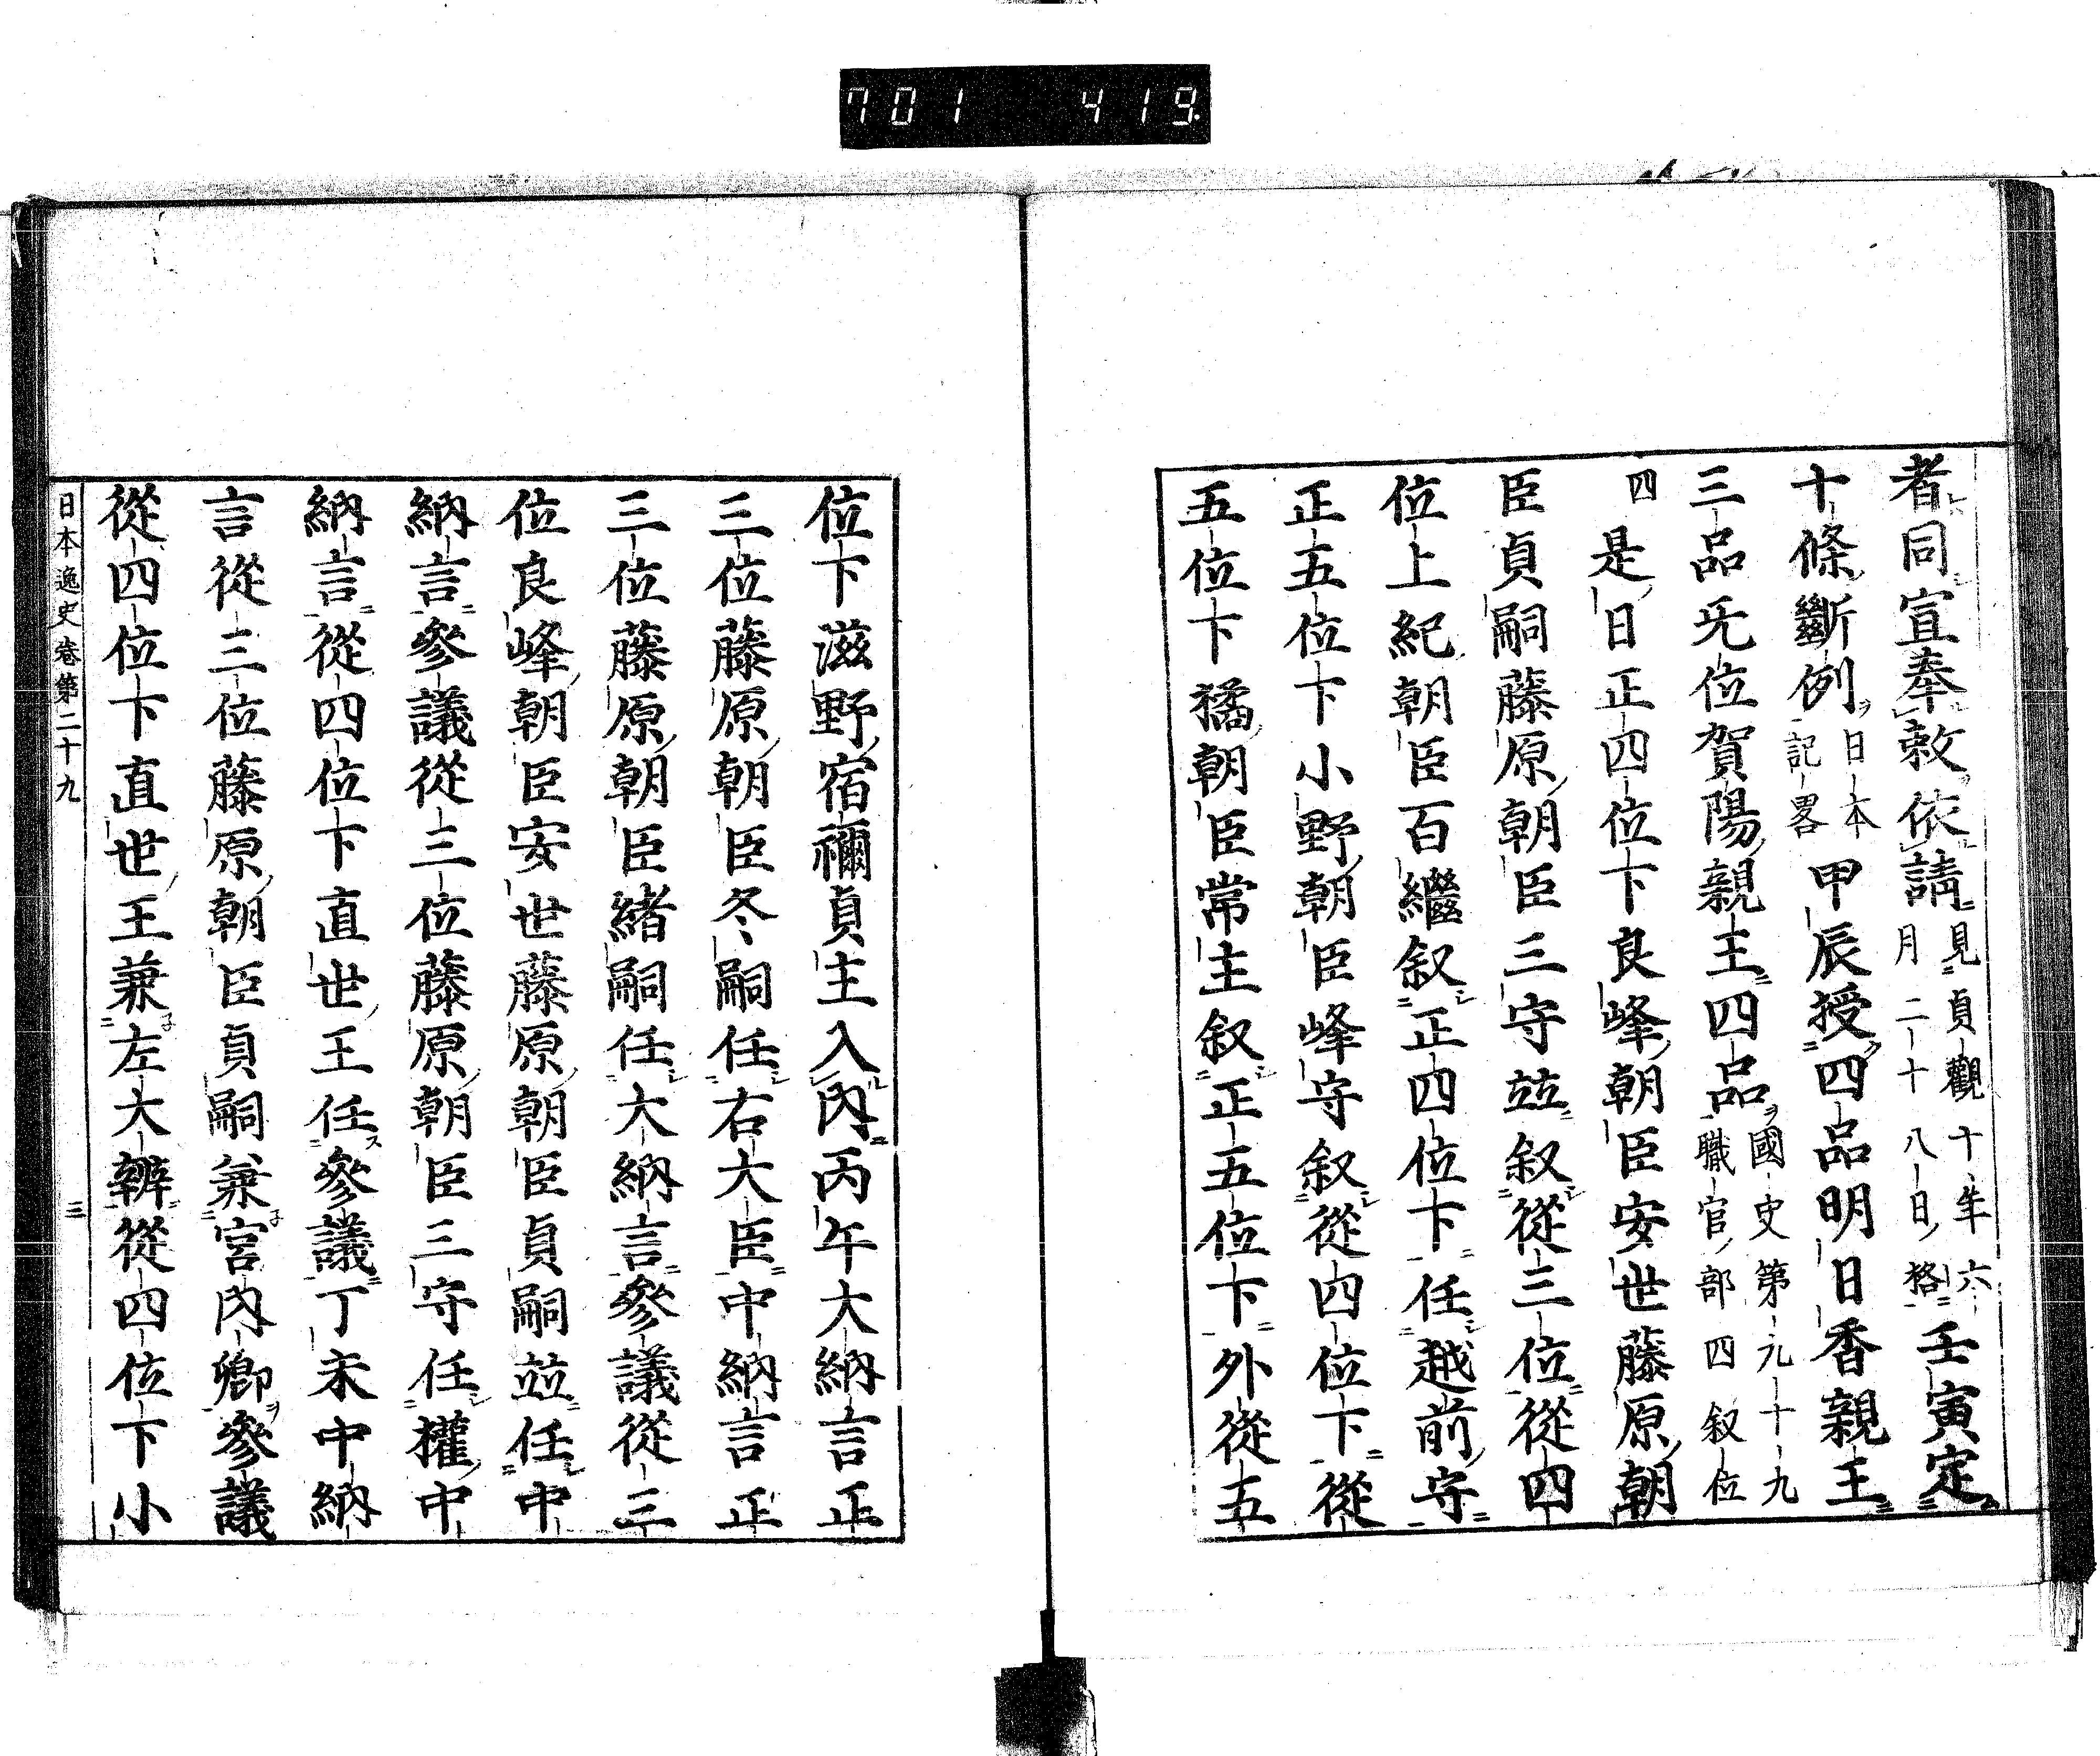 701 419
者同宣奉敕依請見貞觀十年六月二十八日格壬寅定
十條斷例日本記畧甲辰授四品明日香親王
三品旡位賀陽親王四品國史第九十九職官部四叙位
四是日正四位下良峰朝臣安世藤原朝
臣貞嗣藤原朝臣三守竝叙從三位從四
位上紀朝臣百繼叙正四位下任越前守
正五位下小野朝臣峰守叙從四位下從
五位下橘朝臣常主叙正五位下外從五
位下滋野宿禰貞主入內丙午大納言正
三位藤原朝臣冬嗣任右大臣中納言正
三位藤原朝臣緒嗣任大納言參議從三
位良峰朝臣安世藤原朝臣貞嗣竝任中
納言參議從三位藤原朝臣三守任權中
納言從四位下直世王任參議丁未中納
言從三位藤原朝臣貞嗣兼宮內卿參議
從四位下直世王兼左大辨從四位下小
日本逸史卷第二十九 三